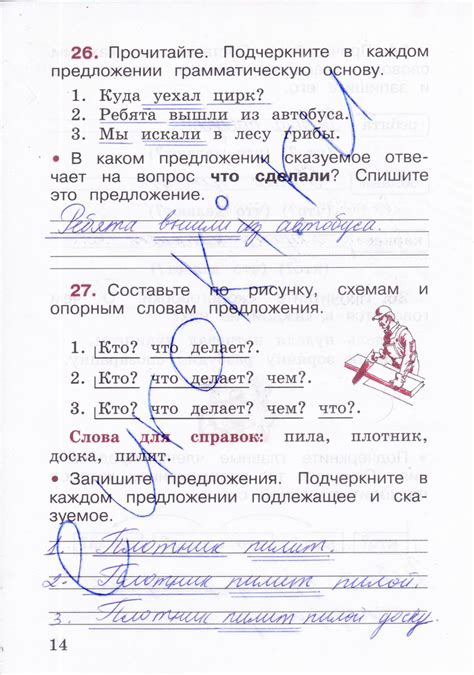 26. Прочитайте. Подчеркните в каждом
предложении грамматическую основу.
1. Куда уехал цирк?
2. Ребята вышли из автобуса.
3. Мы искали в лесу грибы.
• В каком предложении сказуемое отве-
чает на вопрос что сделали? Спишите
это предложение.
Ребята вышли из автобуса.
27. Составьте по рисунку, схемам и
опорным словам предложения.
1. Кто? что делает?.
2. Кто? что делает? чем?.
3. Кто? что делает? чем? что?.
Слова для справок: пила, плотник,
доска, пилит.
• Запишите предложения. Подчеркните в
каждом предложении подлежащее и ска-
зуемое.
1. Плотник пилит.
2. Плотник пилит пилой.
3. Плотник пилит пилой доску.
14